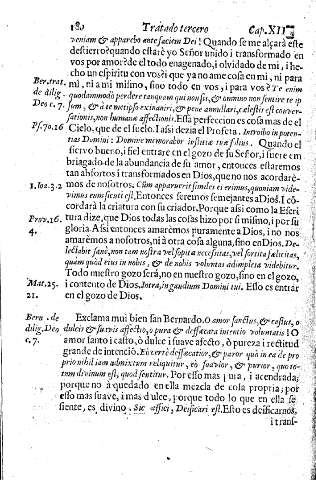 180 Tratado tercero Cap. XII.
veniam & apparebo ante faciem Dei! Quando se me alçará este
destierro? quando estaré yo Señor unido i transformado en
vos por amor? de el todo enagenado, i olvidado de mi, i he-
cho un espiritu con vos? i que ya no ame cosa en mi, ni para
mi, ni a mi mismo, sino todo en vos, i para vos? Te enim
Ber. trat. de dilig. Deo c. 7.
quodammodò perdere tanquam qui non sis, & omnino non sentire te ip
sum, & à te metipso exinaniri, & penè annullari, cælestis est conver-
sationis, non humanæ affectionis. Esta perfeccion es cosa mas de el
Ps. 70. 16
Cielo, que de el suelo. I assi dezia el Profeta. Introibo in poten-
tias Domini: Domine memorabor iustitiæ tuæ solius. Quando el
siervo bueno, i fiel entràre en el gozo de su Señor, i fuere em
briagado de la abundancia de su amor, entonces estaremos
tan absortos i transformados en Dios, que no nos acordaré-
1. Ioa. 3. 2
mos de nosotros. Cùm apparuerit similes ei erimus, quoniam vide-
vimus eum sicuti est. Entonces seremos semejantes a Dios. I cò
cordará la criatura con su criador. Porque assi como la Escri
Prov. 16. 4.
tura dize, que Dios todas las cosas hizo por si mismo, i por su
gloria. Assi entonces amarèmos puramente a Dios, i no nos
amarèmos a nosotros, ni à otra cosa alguna, sino en Dios. De-
lectabit sanè, non tam nostra vel sopita necessitas, vel sortita fœlicitas,
quàm quòd eius in nobis, & de nobis voluntas adimpleta videbitur.
Todo nuestro gozo será, no en nuestro gozo, sino en el gozo,
Mat. 25. 21.
i contento de Dios. Intra, in gaudium Domini tui. Esso es entrar
en el gozo de Dios.
Bern. de dilig. Deo c. 7.
Exclama mui bien san Bernardo. O amor sanctus, & castus, o
dulcis & suavis affectio, o pura & defæcata intentio voluntatis! O
amor santo i casto, ò dulce i suave afecto, ò pureza i rectitud
grande de intenciò. Eò certè defæcatior, & purior quò in ea de pro
prio nihil iam admixtum relinquitur, eò suavior, & purior, quo to-
tum divinum est, quod sentitur. Por esso mas pura, i acendrada;
porque no à quedado en ella mezcla de cosa propria; por
esso mas suave, i mas dulce, porque todo lo que en ella se
siente, es divino. Sic affici, Deificari est. Esto es deificarnos,
i trans-